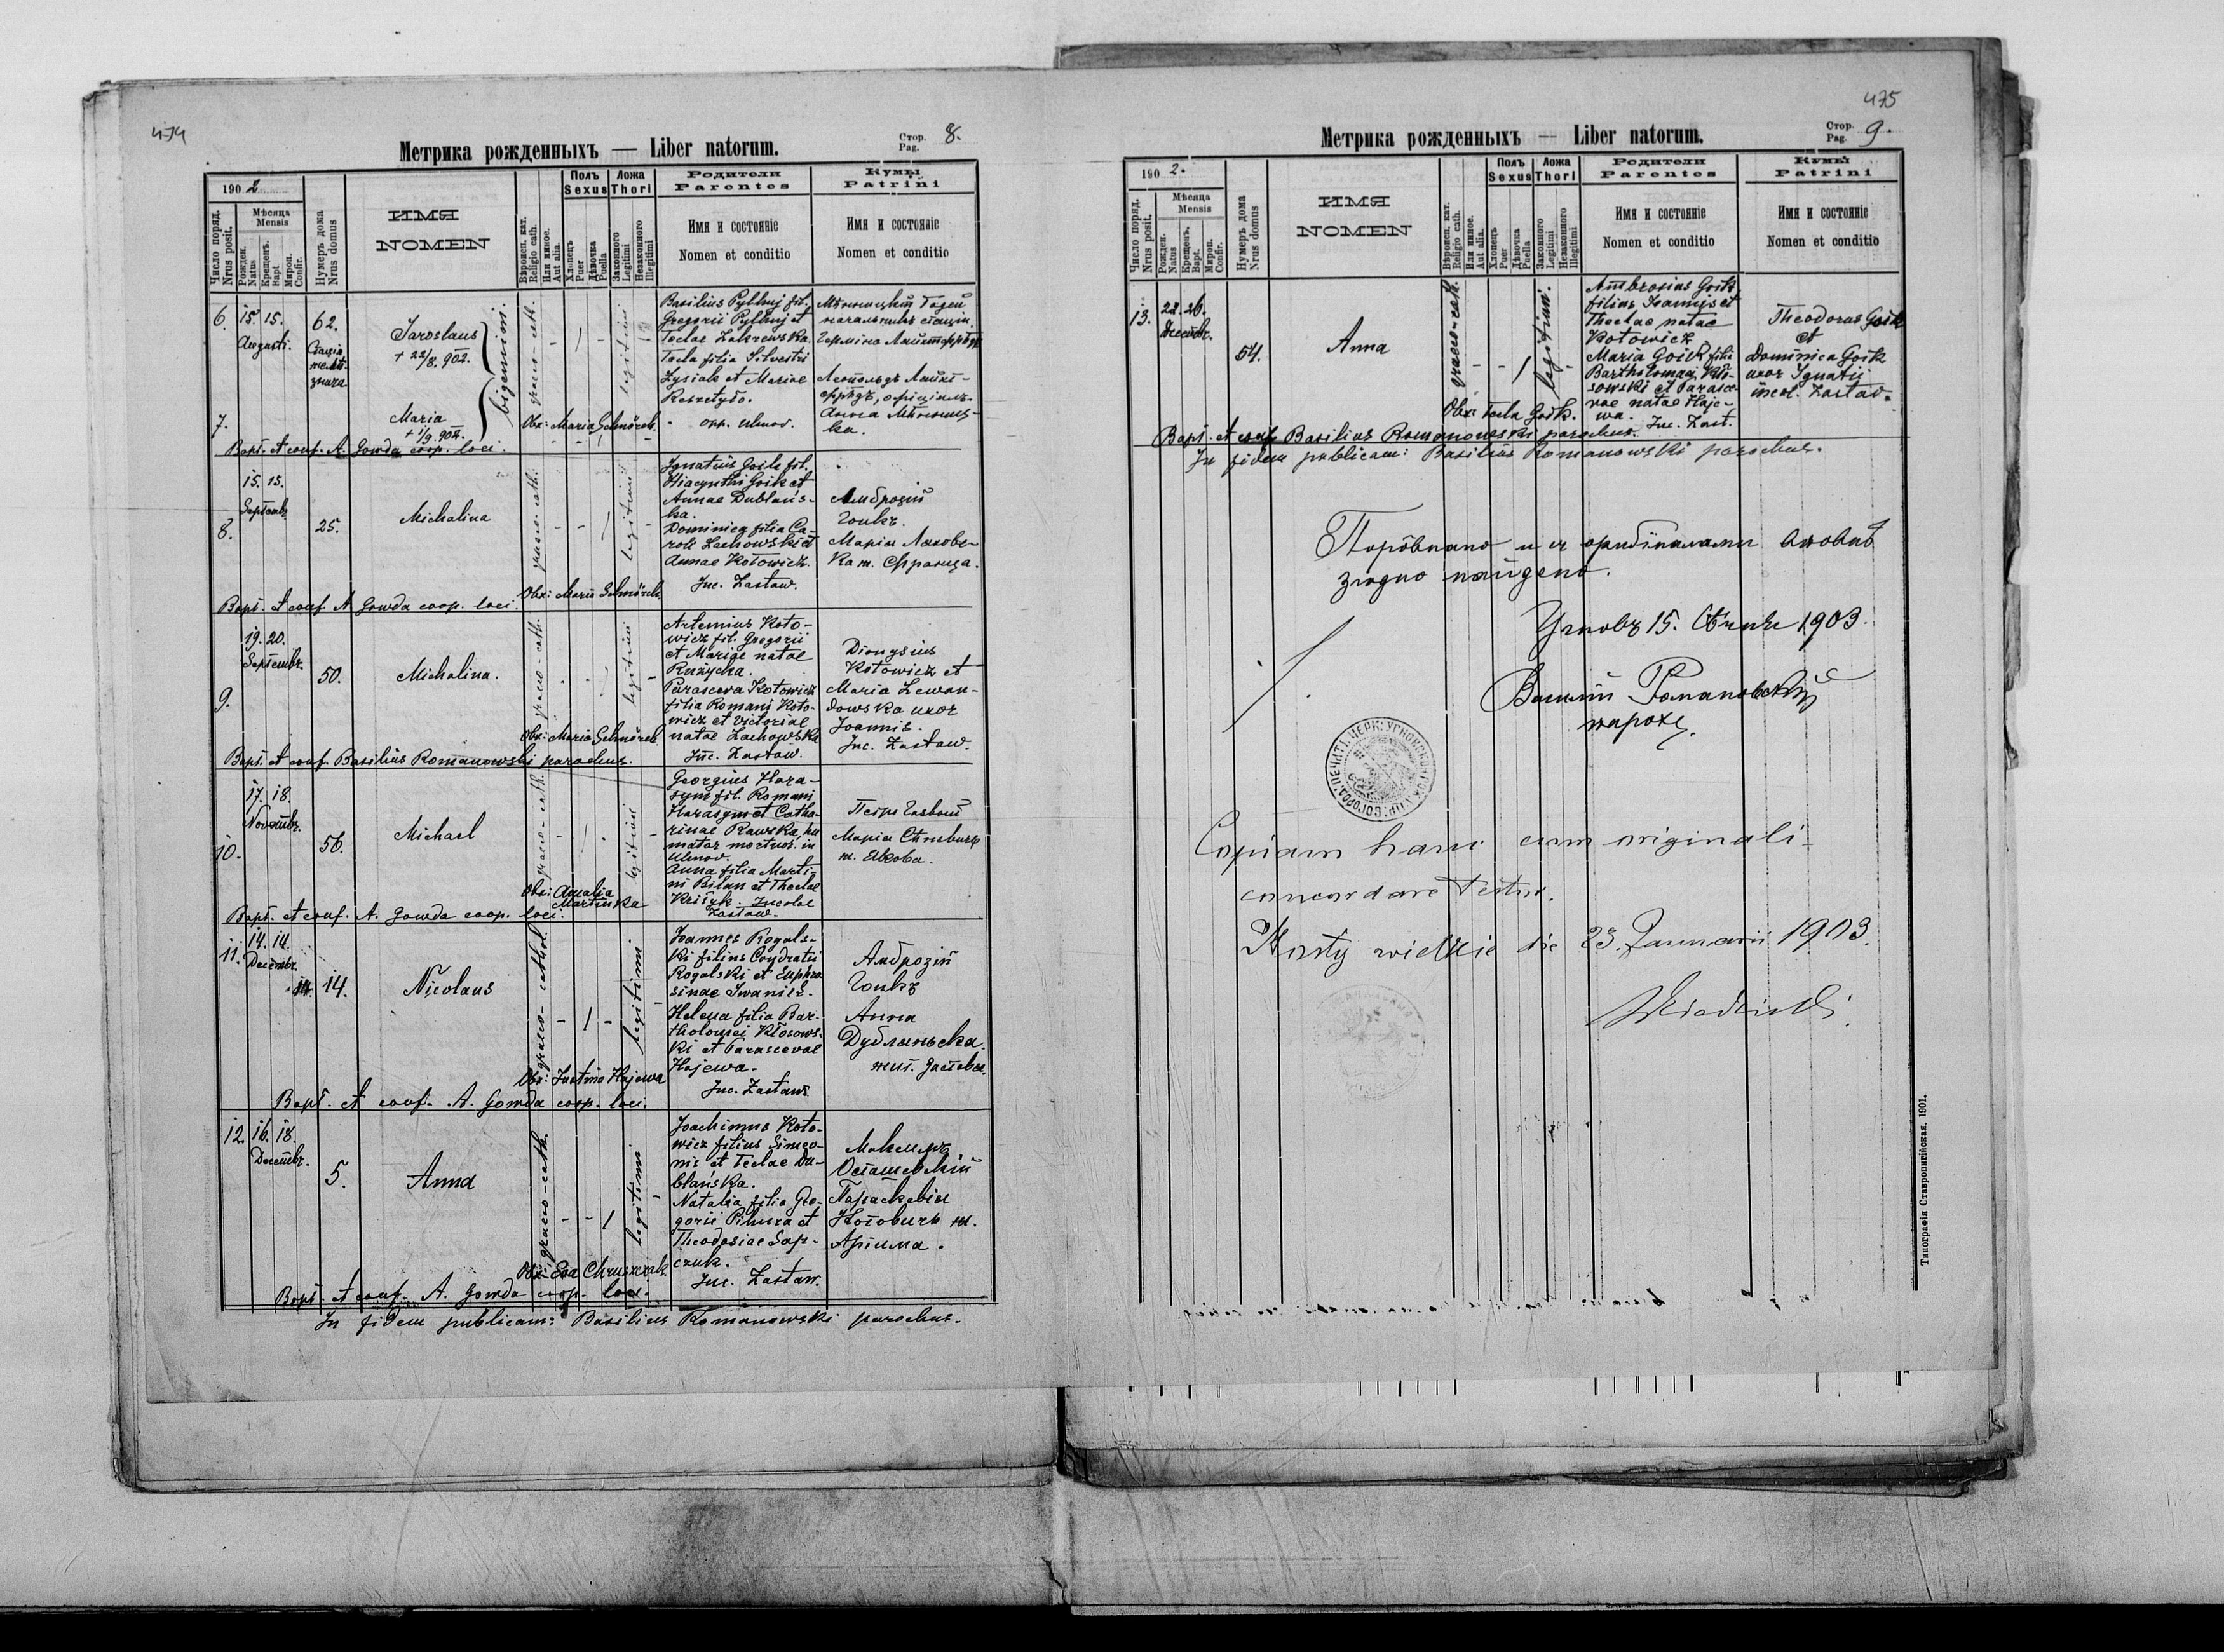 474
Метрика рожденныхъ — Liber natorum.
Стор. Pag. 8.
190 2
Число поряд. Nrus posit.
Мѣсяца Mensis
Рожден. Natus
Крещенъ. Bapt.
Мироп. Confir.
Нумеръ дома Nrus domus
ИМЯ
NOMEN
Вѣроисп. кат. Religio cath.
Или иное. Aut alia.
Полъ Sexus
Хлопецъ Puer
Дѣвочка Puella
Ложа Thori
Законного Legitimi
Незаконного Illegitimi
Родители
Parentes
Имя и состоянiе
Nomen et conditio
Кумы
Patrini
Имя и состоянiе
Nomen et conditio
6. 15. 15.
Augusti.
62.
Jaroslaus
+ 22/8. 902.
7.
Maria
+ 1/9. 902.
bigemini.
graeco-cath.
legitimi
Basilius Pylhuj fil.
Gregorii Pylhuj et
Teclae Zakrewska.
Tecla filia Silvestri
Zysiak et Mariae
opp. Uhnov.
начальникъ стацiи.
Obx: Maria Schnörch.
Bapt. et conf. A. Gowda coop. loci.
8. 15. 15.
Septembr.
25.
Michalina
graeco-cath.
legitimi
Ignatius Goik fil.
Hiacynthi Goik et
Annae Dublańs-
ka.
Dominica filia Ca-
roli Lachowski et
Annae Kotowicz.
Inc. Zastaw.
Амброзiй
Гоикъ.
Марiя Ляховс-
ка ж. Франца.
Obx: Maria Schnörch
Bapt. et conf. A. Gowda coop. loci.
9. 19. 20.
Septembr.
50.
Michalina.
graeco-cath.
legitimi
Artemius Koto-
wicz fil. Gregorii
et Mariae natae
Ruzycka.
Parasceva Kotowicz
filia Romani Koto-
wicz et Victoriae
natae Lachowska
Inc. Zastaw.
Dionysius
Kotowicz et
Maria Lewan-
dowska uxor
Joannis.
Inc. Zastaw.
Obx: Maria Schnörch
Bapt. et conf. Basilius Romanowski parochus.
10. 17. 18.
Novembr.
56.
Michael
graeco-cath.
legitimi
Georgius Hara-
sym fil. Romani
Harasym et Catha-
rinae Rawska, hu
mator mortuor. in
Uhnov.
Anna filia Marti-
ni Bilan et Theclae
Kriśzk. Incolae
Zastaw.
Obx: Amalia
Martinka
Bapt. et conf. A. Gowda coop. loci.
11. 14. 14.
Decembr.
14.
Nicolaus
graeco-cathol.
legitimi
Joannes Rogals-
ki filius Condratii
Rogalski et Euphro-
sinae Iwanick.
Helena filia Bar-
tholomei Kłosows-
ki et Parascevae
Hajewa.
Inc. Zastaw.
Амброзiй
Гоикъ
Анна
Дубляньска.
жит. Заставя.
Obx: Justina Hajewa
Bapt. et conf. A. Gowda coop. loci.
12. 16. 18.
Decembr.
5.
Anna
graeco-cath.
legitimi
Joachimus Koto-
wicz filius Simeo-
nis et Teclae Du-
blańska.
Natalia filia Gre-
gorii Pihura et
Theodosiae Sap-
czuk.
Inc. Zastaw.
Осташевскiй
Параскевiя
Котовичъ ж.
Артима.
Obx: Eva Chruszczak.
Bapt. et conf. A. Gowda coop. loci.
In fidem publicam: Basilius Romanowski parochus.
475
Метрика рожденныхъ — Liber natorum.
Стор. Pag. 9.
190 2.
Число поряд. Nrus posit.
Мѣсяца Mensis
Рожден. Natus
Крещенъ. Bapt.
Мироп. Confir.
Нумеръ дома Nrus domus
ИМЯ
NOMEN
Вѣроисп. кат. Religio cath.
Или иное. Aut alia.
Полъ Sexus
Хлопецъ Puer
Дѣвочка Puella
Ложа Thori
Законного Legitimi
Незаконного Illegitimi
Родители
Parentes
Имя и состоянiе
Nomen et conditio
Кумы
Patrini
Имя и состоянiе
Nomen et conditio
13. 22. 26.
Decembr.
54.
Anna
graeco-cath.
legitimi.
Ambrosius Goik
filius Joannis et
Theclae natae
Kotowicz
Maria Goik filia
Bartholomaei Kło-
sowski et Parasce-
vae natae Haje-
wa. Inc. Zast.
Theodorus Goik
et
Dominica Goik
uxor Ignatii
incol. Zastaw.
Obx: Tecla Goik.
Bapt. et conf. Basilius Romanowski parochus.
In fidem publicam: Basilius Romanowski parochus.
Порôвнано и съ оригiналами
згôдно найдено.
Угновъ 15. Сѣчня 1903.
Василiй Романовскiй
парохъ.
Copiam hanc cum originali
concordare testor.
Mosty wielkie die 23. Januarii 1903.
Типографiя Ставропигiйская. 1901.